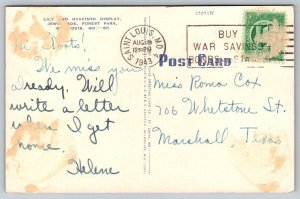 LILY AND HYACINTH DISPLAY,
JEWEL BOX, FOREST PARK,
ST. LOUIS, MO.
Hi "Toots",
We miss you
already. Will
write a letter
when I get
home.
Helene
SAINT LOUIS, MO.
AUG
12 PM
1943
BUY
WAR SAVINGS
BONDS
POST CARD
Miss Roma Cox
706 Whetstone St.
Marshall, Texas